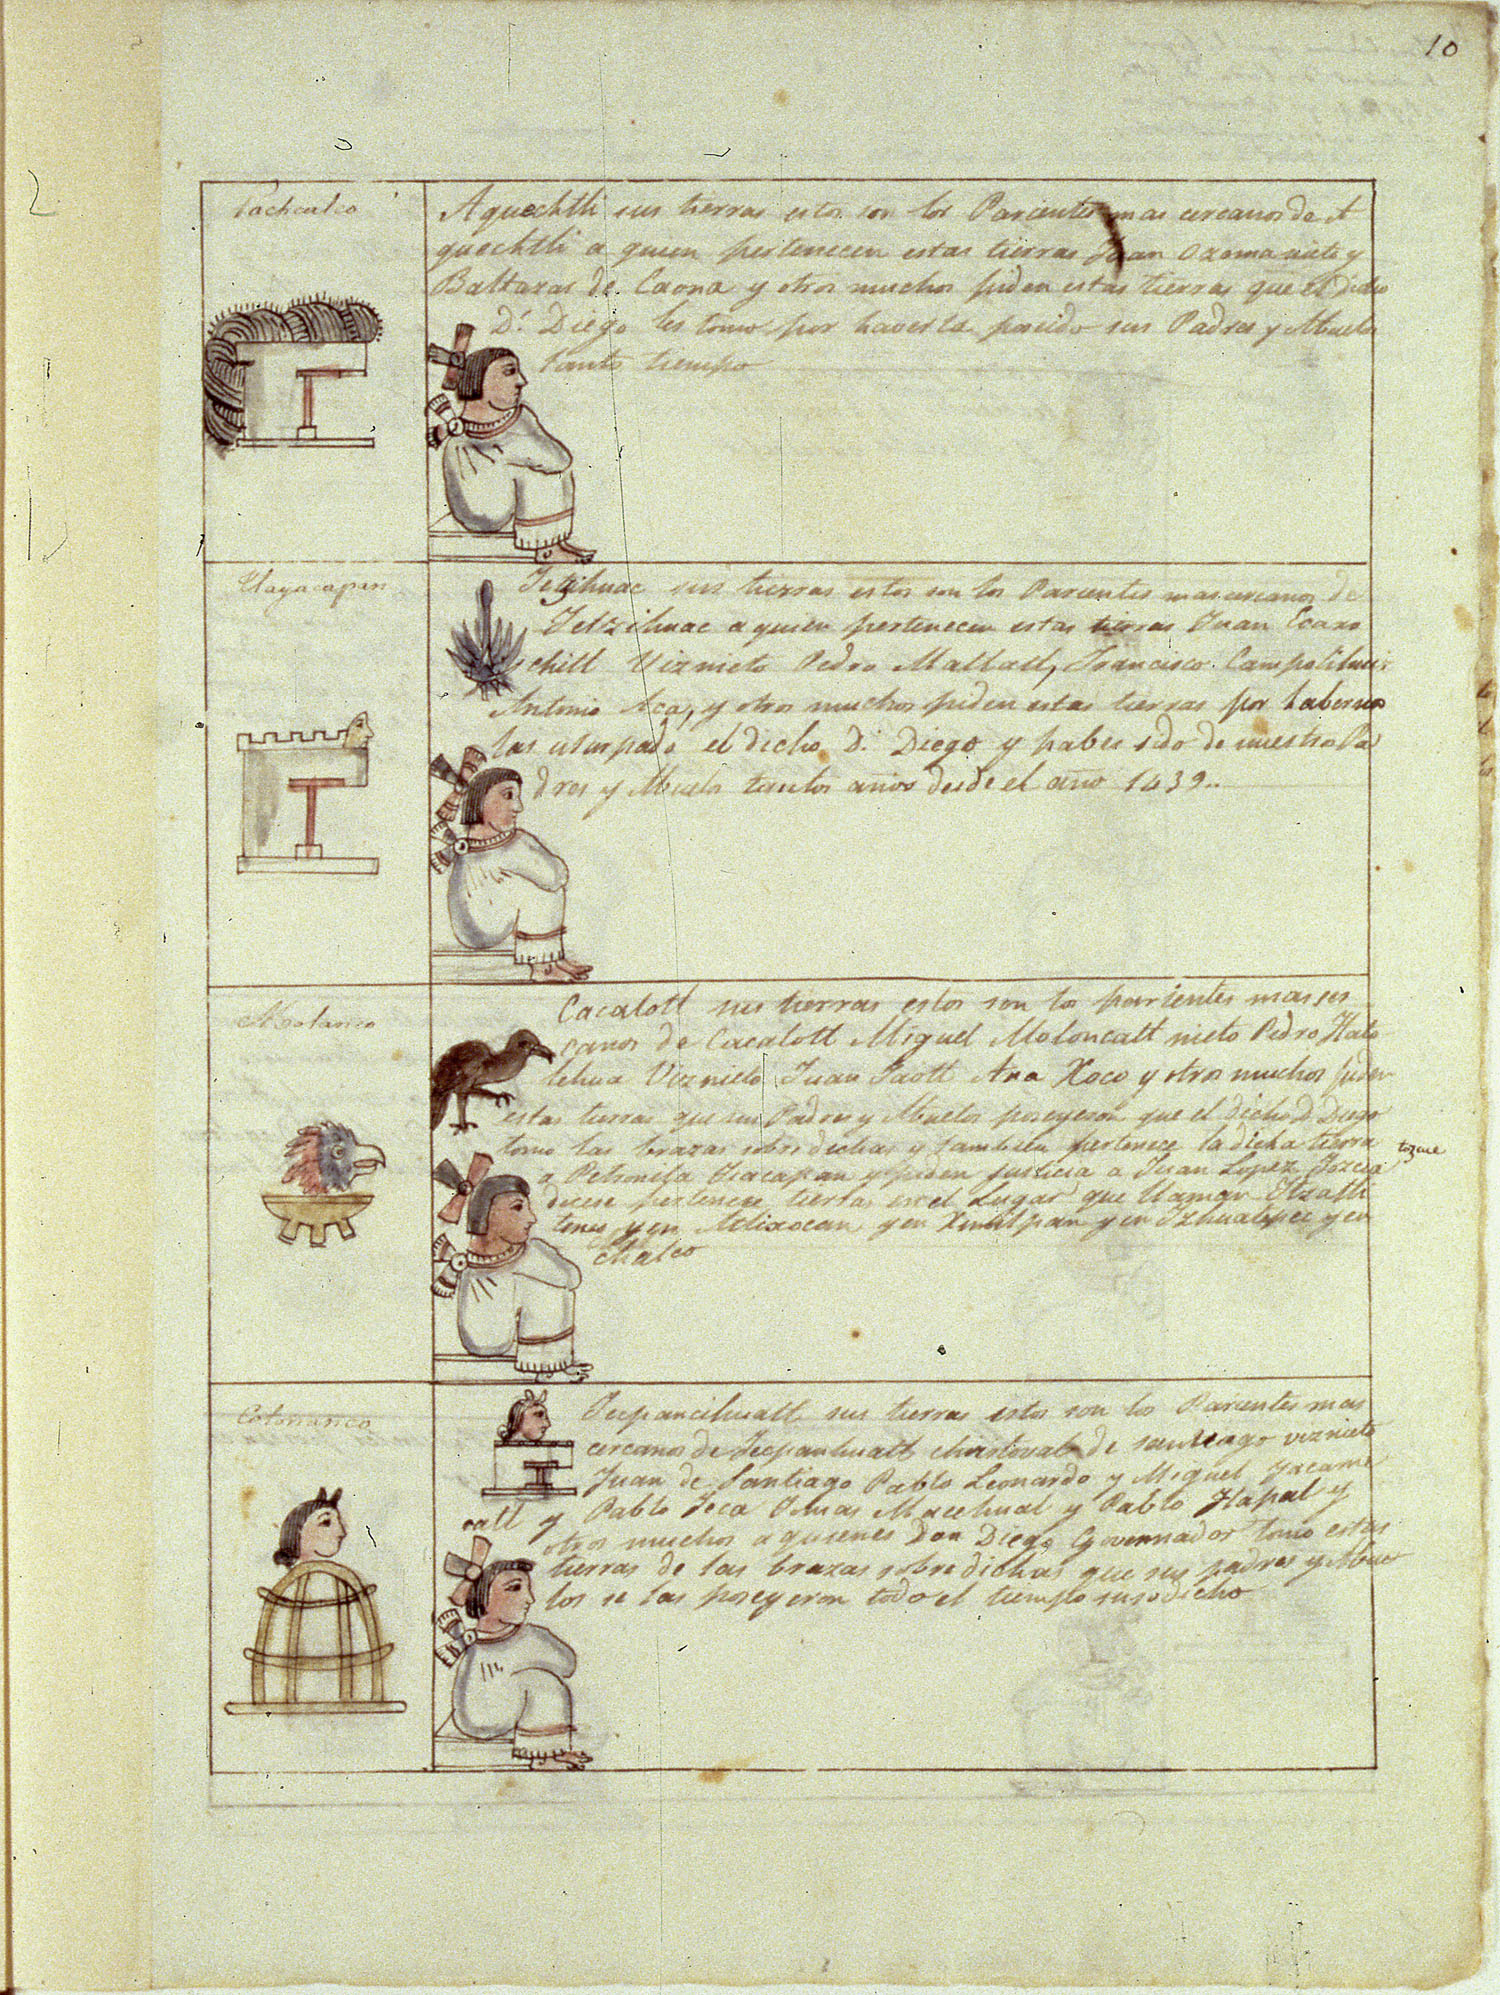 10
Tachcalco
Aquechtli sus tierras estos son los Parientes mas cercanos de A
quechtli a quien pertenecen estas tierras Juan Ozoma nieto y
Baltazar de Caona y otros muchos piden estas tierras que el dicho
Dn. Diego les tomo por haverla poseido sus Padres y Abuelos
tanto tiempo
Tlayacapan
Tetzihuac sus tierras estos son los Parientes mas cercanos de
Tetzihuac a quien pertenecen estas tierras Juan
chitl Viznieto Pedro Mallatl, Francisco
Antonio Aca, y otros muchos piden estas tierras por habernos
las usurpado el dicho D. Diego y haber sido de nuestros Pa
dres y Abuelos tantos años desde el año 1439..
Cacalotl sus tierras estos son los parientes mas ser
canos de Cacalotl Miguel Moloncatl nieto Pedro Hato
lehua Viznieto Juan Ana Xoco y otros muchos piden
estas tierras que sus Padres y Abuelos poseyeron que el dicho D. Diego
tomo las brazas sobre dichas y tambien pertenece la dicha tierra
a Petronila Tiacapan y piden justicia a Juan Lopez
tozcue
dicese pertenece tierras en el Lugar que llaman Itzatli
tenco y en Atlixocan y en Xmilpan y en Izhuatepec y en
Chalco
Colonanco
Tecpancihuatl sus tierras estos son los Parientes mas
cercanos de Tecpanhuatl Christoval de santiago viznieto
Juan de Santiago Pablo Leonardo y Miguel Yacame
catl y Pablo Teca Tomas Macehual y Pablo Tlapal y
otros muchos a quienes Don Diego Governador tomo estas
tierras de las brazas sobre dichas que sus padres y Abue
los se las poseyeron todo el tiempo susodicho